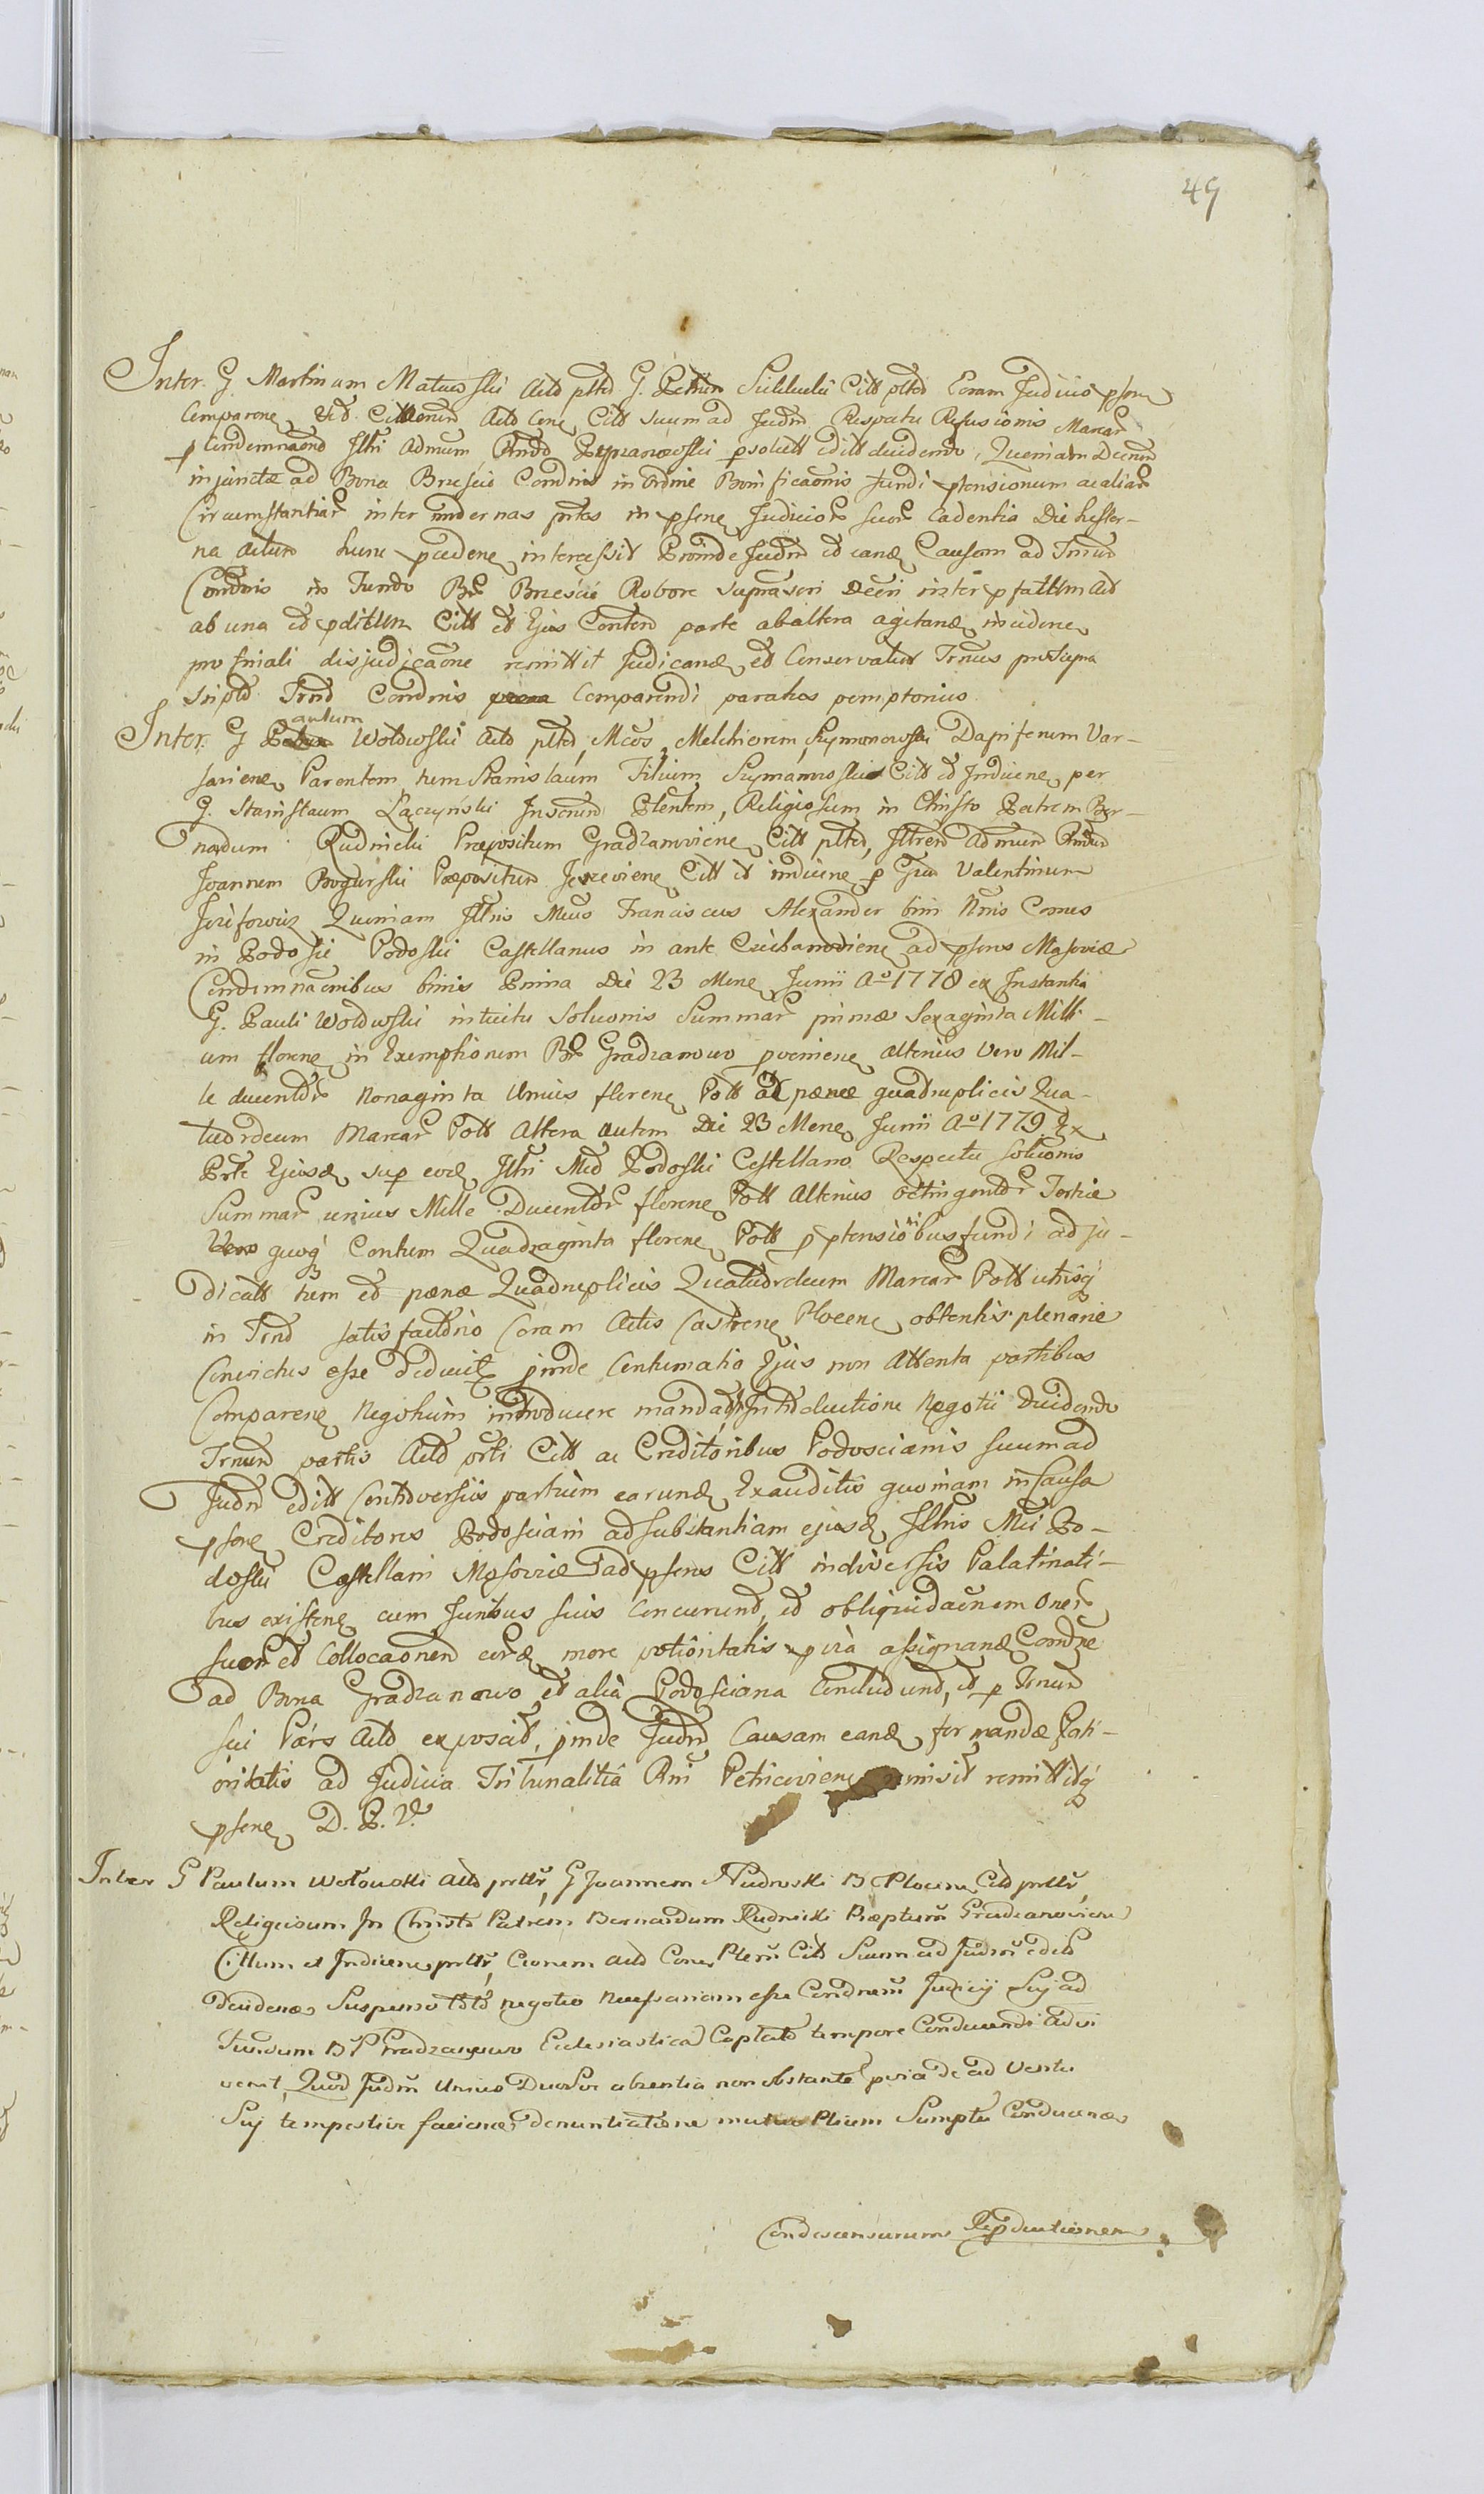 49
Inter G Martinum Matuoski Actd pltd G. Citt pltd Coram Judicio psen
Comparene, Actd Cone, Citt suum ad Judm Respectu Refusionis Marcar
p Condemnaond Jllri Admum Rndd psolutt editt decidendo, Quoniam Decrun
injunctæ ad Bona Brescie Condnis in ordine Bonificaonis fundi ptensionum ac aliar
Circumstantiar inter modernas prtes in psene Judicior suor Cadentia Die hester-
na hunc pcedene intercessit Proinde Judm et eand Causam ad Trnun
Condnis in Fundo Br Brzeście Robore suprascri Decri inter pfattum Actd
ab una et pditum Citt et Ejus Contend parte ab altera agitand incidene
pro finali disjudicaone remittit Judicand et Conservatur Trnus pro supra
sripto Trnd Condnis Comparendi partibus pemptorius
Inter G Paulum Wołowski Actd pltd, Mcos Melchiorem Szymonowski Dapiferum Var-
saviene Parentem tum Stanislaum Filium Szymanoskie Citt et Indiuene per
G. Stanislaum Łączyński Plentem, Religiosum in Christo Patrem Ber-
nardum Rudnicki Præpositum Gradzanoviene Citt pltd, Jllrem Admun Rndun
Joannem Bogurski Præpositun Citt et indiuene p Grum Valentinum
Quoniam Jllris Mcus Franciscus Alexander bini Nnis Comes
in Podosie Podoski Castellanus in ante Ciechanoviene ad psens Masoviæ
Condemnaonibus binis Prima Die 23 Mene Junii Ao 1778 ex Instantia
G. Pauli Wołowski intuitu Soluonis Summar primæ Sexaginta Milli-
um florene in Exemptionem Br Gradzanowo pveniene alterius Vero Mil-
le ducentor Nonaginta Unius florene Pott ac pænæ quadruplicis Qua-
tuordecim Marcar Pott Altera autem Die 23 Mene Junii Ao 1779 Ex
Prte Ejusd sup eod Jllri Mco Podoski Castellano Respectu Soluonis
Summar unius Mille Ducentor florene Pott Alterius octingentor Tertiæ
quoq Centum Quadraginta florene Pott p ptensionibus fundi adju-
dicatt tum et pænæ Quadruplicis Quatuordecim Marcar Pott utrisq
in Trnd satisfactorio Coram Actis Castrene Plocene obtentis plenarie
Convictus esse deducit pinde Contumatia Ejus non Attenta partibus
Comparene Negotium introducere mandat Introductione Negotii decidendo
Trnun partis Actd prti Citt ac Creditoribus Podoscianis suum ad
Judm editt Controversiis partium earund Exauditis quoniam in Causa
psene Creditores Podosciani ad substantiam ejusd Jllris Mci Po-
doski Castellani Masoviæ ad psens Citt in diversis Palatinati-
bus existene cum Juribus suis Concurrend, et obliquidaonem Oner
suor et Collocaonem eord more potioritatis p via assignand Condne
ad Bona Gradzanowo et alia Podosciana Concludend, et p Trnun
sui Pars Actd exposcit, pinde Judm Causam eand formandæ Poti-
oritatis ad Judicia Tribunalitia Rni Petricoviene remisit remittitq
psene D. P. V.
Inter G Paulum Wołowski Actd prtt, G Joannem Nudroski B. Plocene Citt prtt,
Religiosum In Christo Patrem Bernardum Rudnicki Præptum Gradzanoviene
Cittum et Indiuene prtt, Cone, Citt Suum ad Judm editt
decidend Suspenso Toto negotio necessariam esse Condnem Judicij Suj ad
Fundum Br Gradzanowo Ecclesiastica Captato tempore Conducendi adin
venit, Quod Judm Unius Duor ve absentia non obstante p via de ad Ventu
Suj tempestive faciend denuntiatione mutuo Ptium Sumptu Conducend
Condescensurum Repductionem